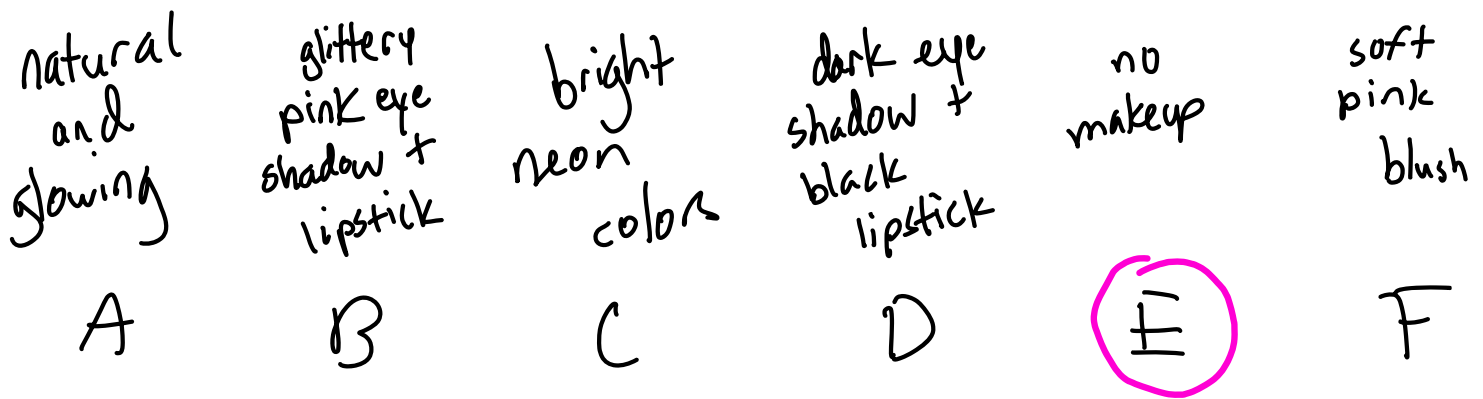 natural
and
glowing
glittery
pink eye
shadow +
lipstick
bright
neon
colors
dark eye
shadow +
black
lipstick
no
makeup
soft
pink
blush
A
B
C
D
E
F